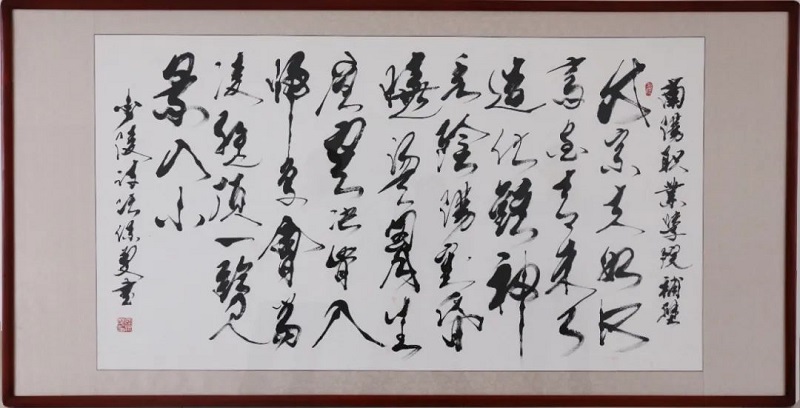 蘭职業学院補壁
岱宗夫如何
齊魯青未了
造化鍾神
秀陰陽割昏
曉盪胸生
層雲決眥入
歸鳥會當
凌絕頂一覽
衆山小
少陵詩張書